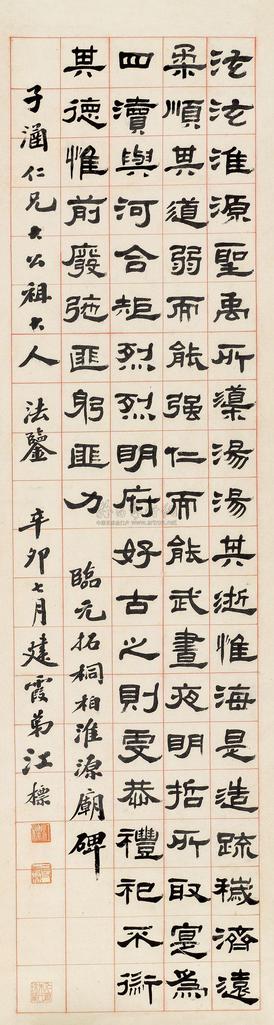 泫泫淮源聖禹所導湯湯其逝惟海是造疏穢濟遠
柔順其道弱而能强仁而能武晝夜明哲所取寔爲
四瀆與河合矩烈烈明府好古之則虔恭禮祀不衍
其德惟前廢弛匪躬匪力 臨元拓桐柏淮源廟碑
子涵仁兄大公祖大人 法鑒 辛卯七月建霞弟江標